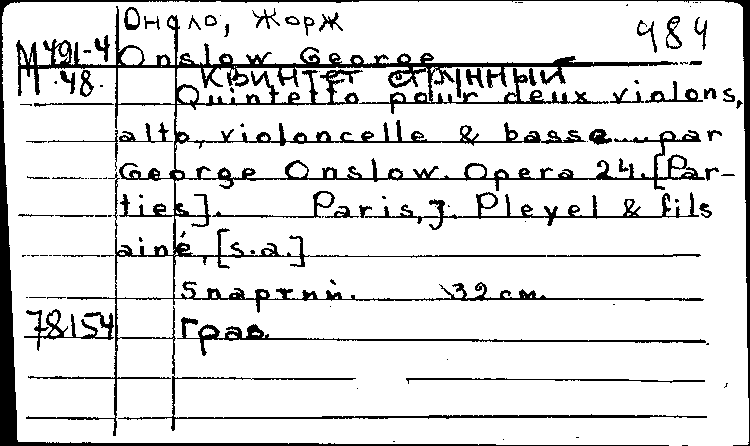 Онсло, Жорж 984
М 491-4 Onslow George
П 48. Квинтет струнный
Quintetto pour deux violons,
alto, violoncelle & basse ... par
George Onslow. Opera 24. [Par-
ties]. Paris, J. Pleyel & fils
ainé, [s.a.]
5 партий. 32 см.
78154 Грав.